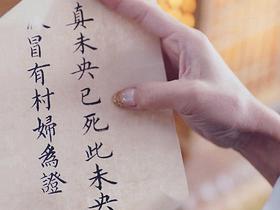 真未央已死此未央
冒有村婦為證